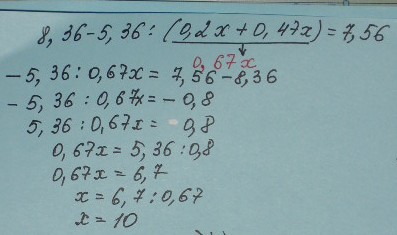 8,36-5,36:(0,2x+0,47x)=7,56
0,67x
-5,36:0,67x=7,56-8,36
-5,36:0,67x=-0,8
5,36:0,67x=0,8
0,67x=5,36:0,8
0,67x=6,7
x=6,7:0,67
x=10